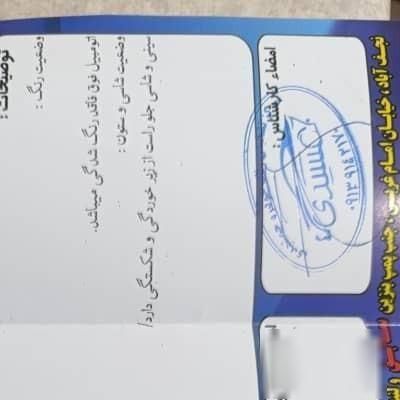 توضیحات :
وضعیت رنگ :
اتومبیل فوق فاقد رنگ شدگی میباشد.
وضعیت شاسی و ستون :
سینی و شاسی جلو راست از زیر خوردگی و شکستگی دارد/
امضاء کارشناس :
جمشیدی
نجف آباد، خیابان امام غربی، جنب پمپ بنزین